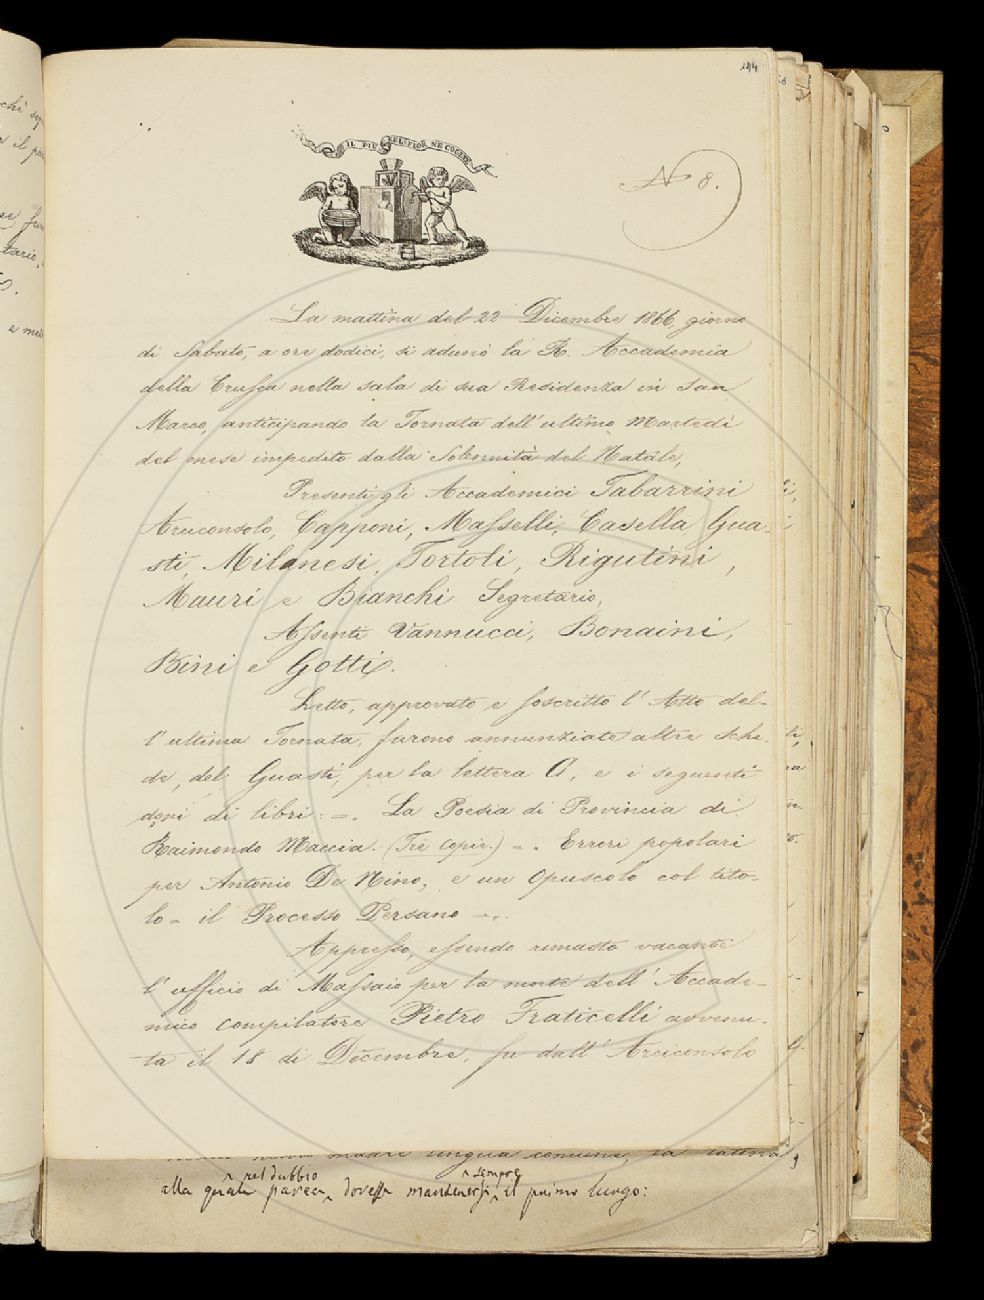 144
IL PIÙ BEL FIOR NE COGLIE
N 8.
La mattina del 22 Dicembre 1866, giorno
di Sabato, a ore dodici, si adunò la R. Accademia
della Crusca nella sala di sua Residenza in San
Marco, anticipando la Tornata dell' ultimo Martedì
del mese impedito dalla Solennità del Natale,
Presenti gli Accademici Tabarrini
Arciconsolo, Capponi, Masselli, Casella, Gua-
sti, Milanesi, Tortoli, Rigutini,
Mauri e Bianchi Segretario,
Assenti Vannucci, Bonaini,
Bini e Gotti.
Letto, approvato e soscritto l' Atto del-
l' ultima Tornata, furono annunziate altre sche-
de, del Guasti, per la lettera C, e i seguenti
doni di libri: =. La Poesia di Provincia di
Raimondo Maccia. (Tre copie.) =. Errori popolari
per Antonio De Nino, e un Opuscolo col tito-
lo = il Processo Persano =.
Appresso, essendo rimasto vacante
l' ufficio di Massaio per la morte dell' Accade-
mico compilatore Pietro Fraticelli avvenu-
ta il 18 di Decembre, fu dall' Arciconsolo
madre lingua comune, la latina,
nel dubbio sempre
alla quale parea, dovesse mantenersi il primo luogo: